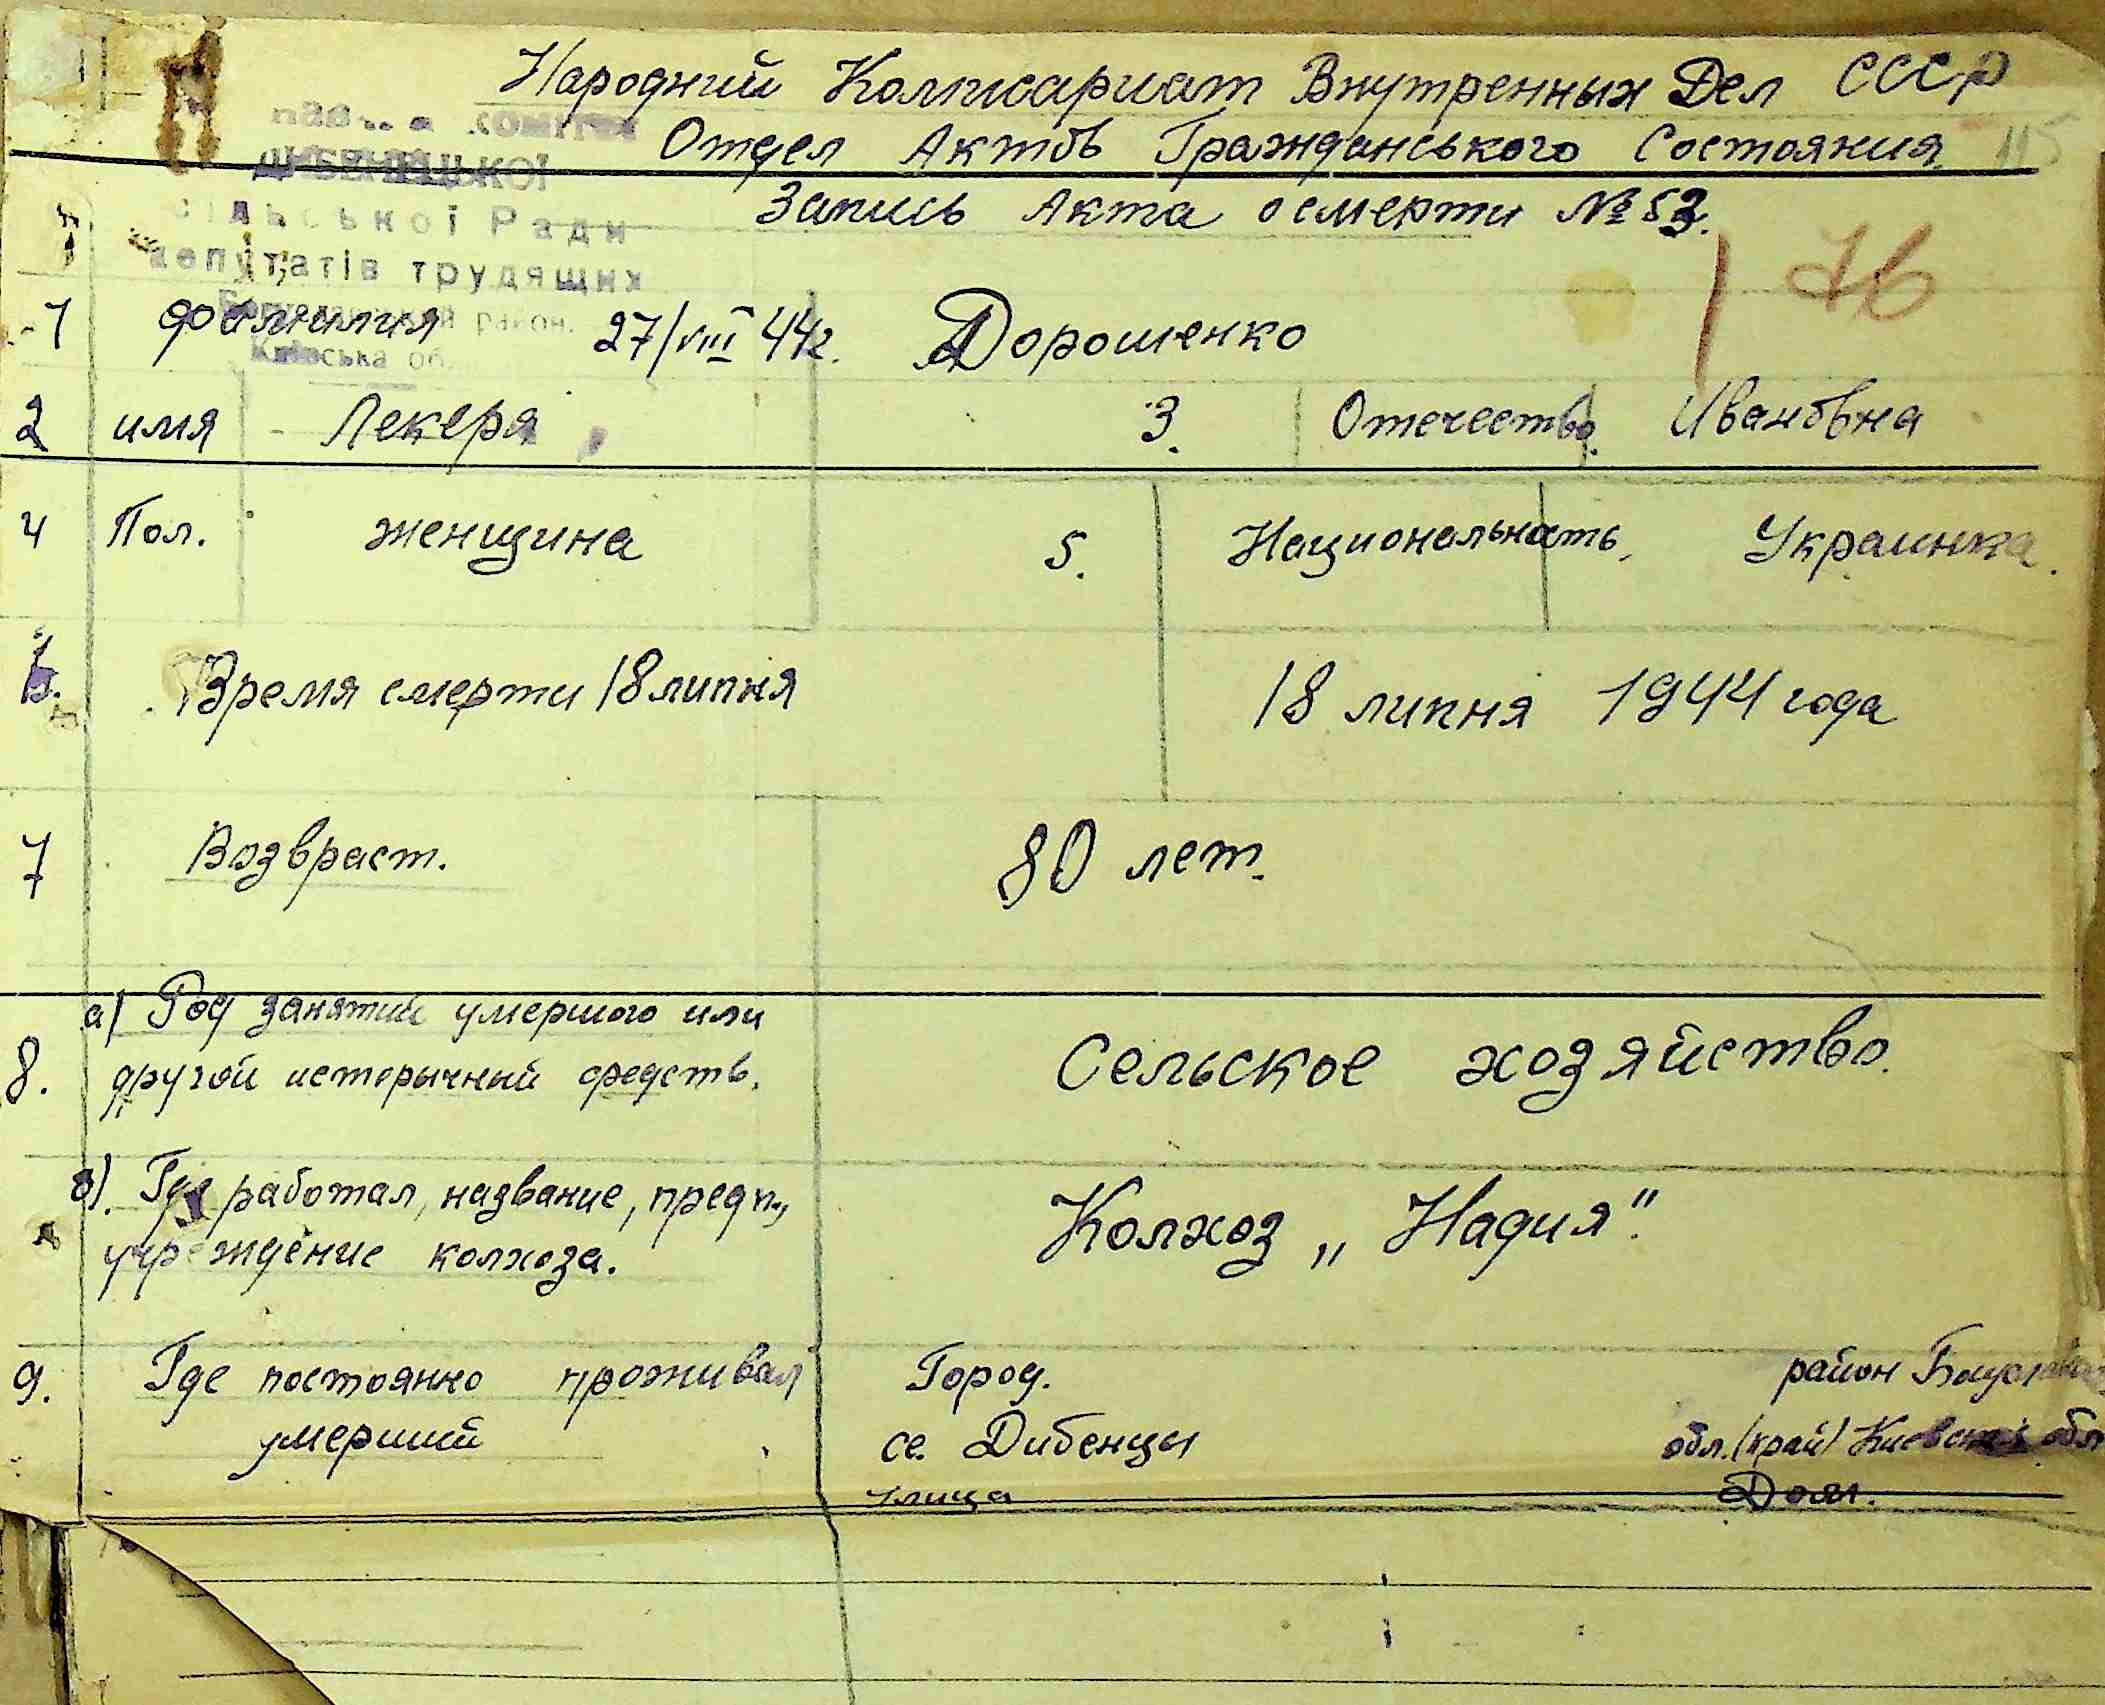 Народний Комисариат Внутренных Дел СССР
Отдел Актов Гражданського Состояния 115
Запись Акта о смерти № 53.
сільської Ради
депутатів трудящих
район.
Київська об.
76
1 фамилия 27/VIII 44г. Дорошенко
2 имя Лекеря 3. Отечество. Ивановна
4 Пол. женщина 5. Национальность. Украинка.
6. Время смерти 18 липня 18 липня 1944 года
7 Возвраст. 80 лет.
а) Род занятий умершого или
8. другой исторычний средств. Сельское хозяйство.
в). Где работал, название, предп., Колхоз „Надия".
учреждение колхоза.
9. Где постоянно проживал Город. район
умерший се. Дибенцы обл. (край) обл
улица Дом.